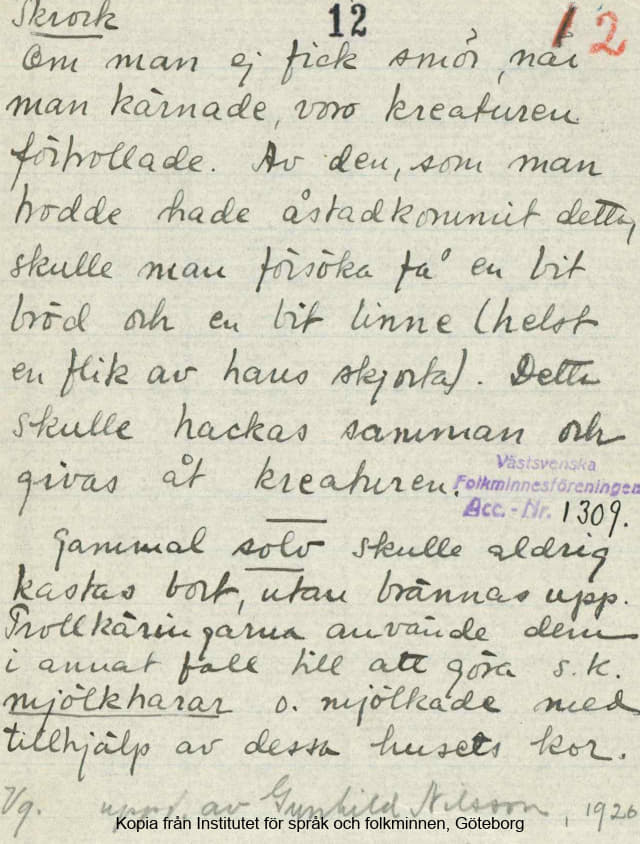 Skrock
12
12
Om man ej fick smör, när
man kärnade, voro kreaturen
förtrollade. Av den, som man
trodde hade åstadkommit detta,
skulle man försöka få en bit
bröd och en bit linne (helst
en flik av hans skjorta). Detta
skulle hackas samman och
givas åt kreaturen.
Västsvenska
Folkminnesföreningen
Acc.-Nr. 1309.
Gammal solv skulle aldrig
kastas bort, utan brännas upp.
Trollkäringarna använde dem
i annat fall till att göra s.k.
mjölkharar o. mjölkade med
tillhjälp av dessa husets kor.
Vg. uppt. av Gunhild Nilsson, 1926
Kopia från Institutet för språk och folkminnen, Göteborg